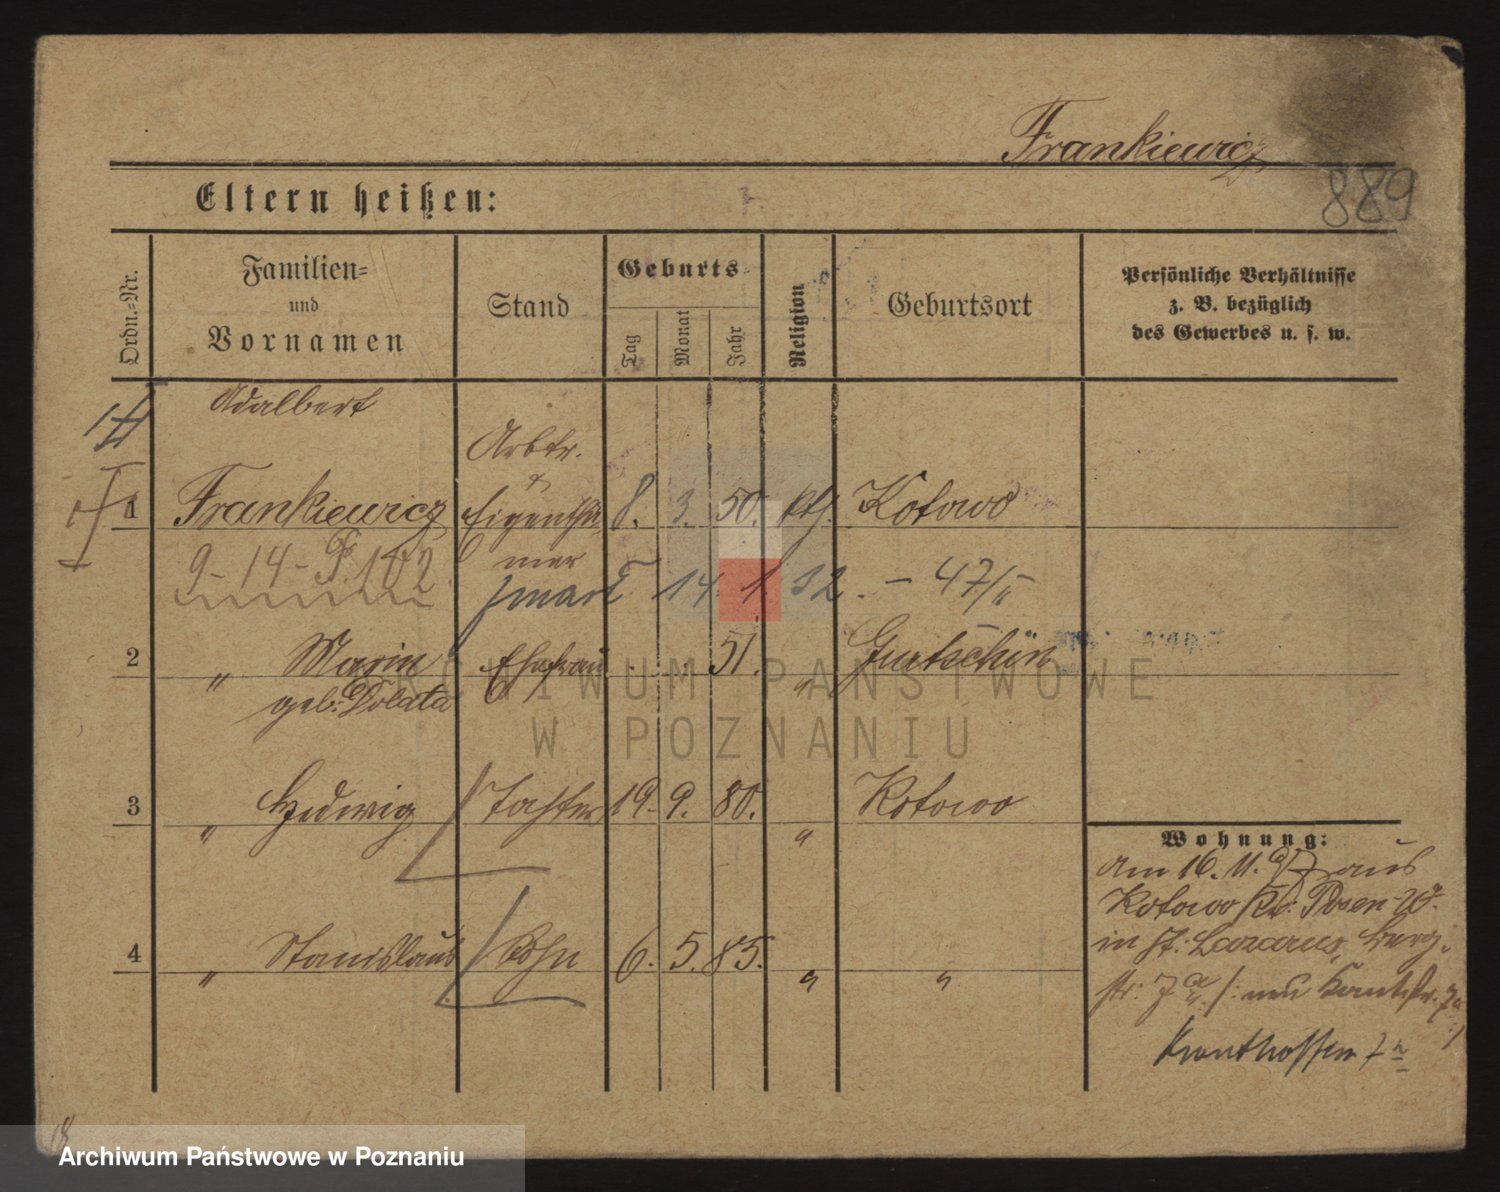 Frankiewicz
889
Eltern heißen:
Ordn.=Nr.
Familien=
und
Vornamen
Stand
Geburts=
Tag
Monat
Jahr
Religion
Geburtsort
Persönliche Verhältnisse
z. B. bezüglich
des Gewerbes u. s. w.
Adalbert
Arbtr.
&
1 Frankiewicz Eigenthü- 8. 3. 50. kth. Kotowo
mer
9-14-P.102
14. 1. 32. - 47/II
2 " Marie Ehefrau 51. " Gurtschin
geb. Dolata
3 " Hedwig Tochter 19. 9. 80. " Kotowo
4 " Stanislaus Sohn 6. 5. 85. " "
Wohnung:
Am 16. 11. 97 aus
Kotowo Kr: Posen-W.
in St: Lazarus, Berg-
str: 7a /: neu 7a
:/
7a
ARCHIWUM PAŃSTWOWE
W POZNANIU
18
Archiwum Państwowe w Poznaniu